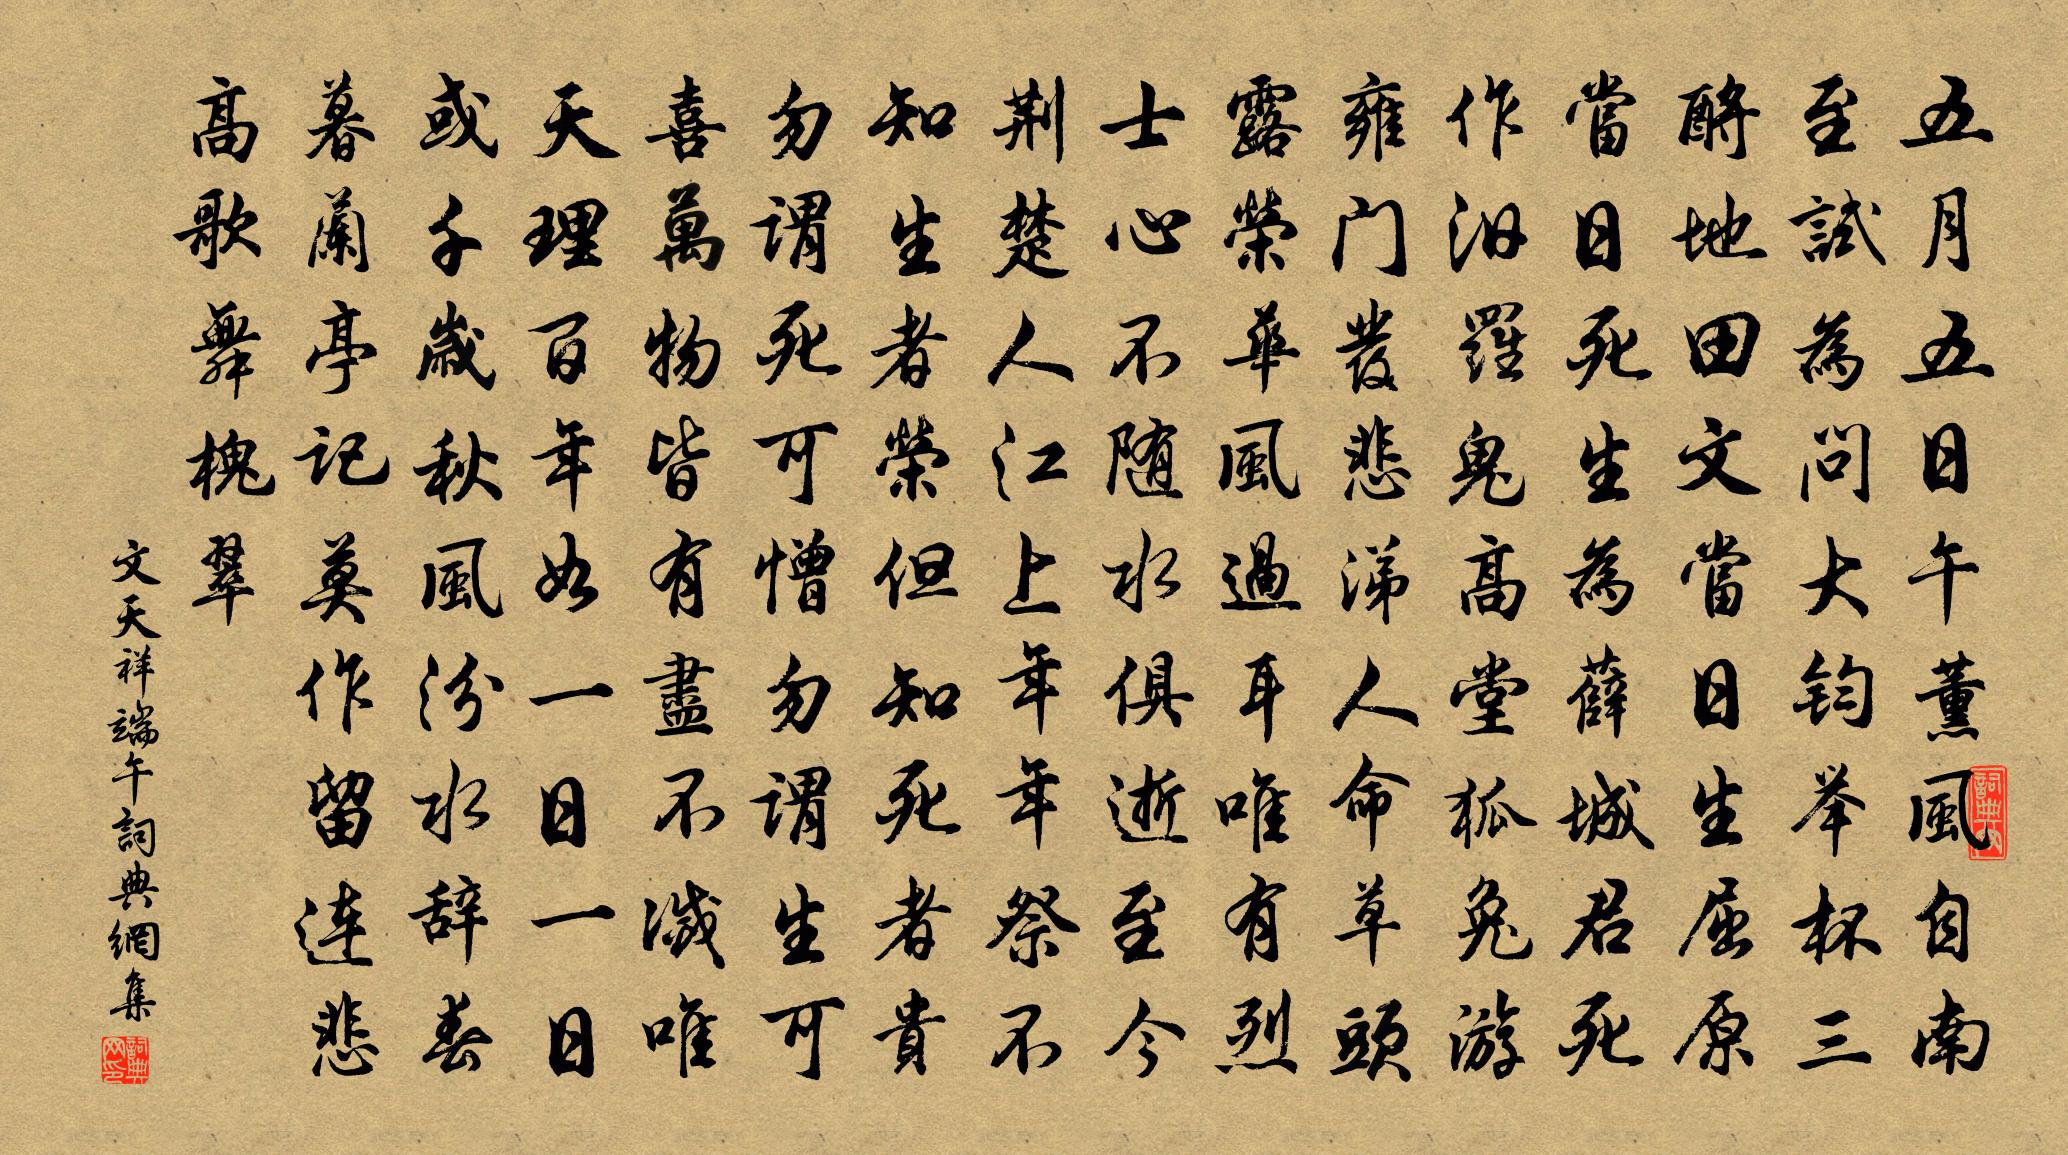 五月五日午薰風自南
至試為問大鈞举杯三
酹地田文當日生屈原
當日死生為薛城君死
作汨羅鬼高堂狐兔游
雍门發悲涕人命草頭
露榮華風過耳唯有烈
士心不随水俱逝至今
荆楚人江上年年祭不
知生者榮但知死者貴
勿謂死可憎勿謂生可
喜萬物皆有盡不滅唯
天理百年如一日一日
或千歲秋風汾水辞春
暮蘭亭记莫作留连悲
高歌舞槐翠
文天祥端午詞典網集
詞典
詞典网印